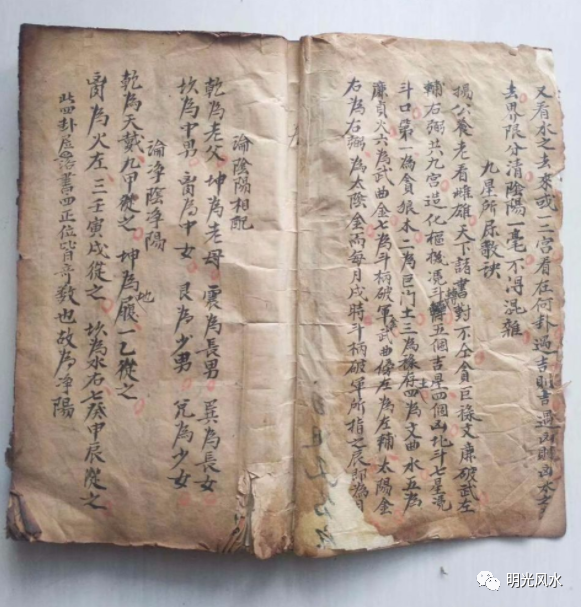 又看水之去來或一二宮看在何卦過吉則吉過凶則凶
去界限分清陰陽一毫不得混雜
九星所屬歌訣
楊公養老看雌雄天下諸書對不仝貪巨祿文廉破武左
輔右弼共九宮造化樞機憑斗轉五個吉星四個凶北斗七星
斗口第一為貪狼木二為巨門土三為祿存土四為文曲水五為
廉貞火六為武曲金七為斗柄破軍金武曲傍左為左輔太陽金
右為右弼為太陰金而每月戌時斗柄破軍所指之辰即為月
論陰陽相配
乾為老父 坤為老母 震為長男 巽為長女
坎為中男 離為中女 艮為少男 兌為少女
論淨陰淨陽
乾為天戴九甲從之 坤為地履一乙從之
离為火左三壬寅戌從之 坎為水右七癸申辰從之
此四卦居洛書四正位皆奇數也故為淨陽
明光风水